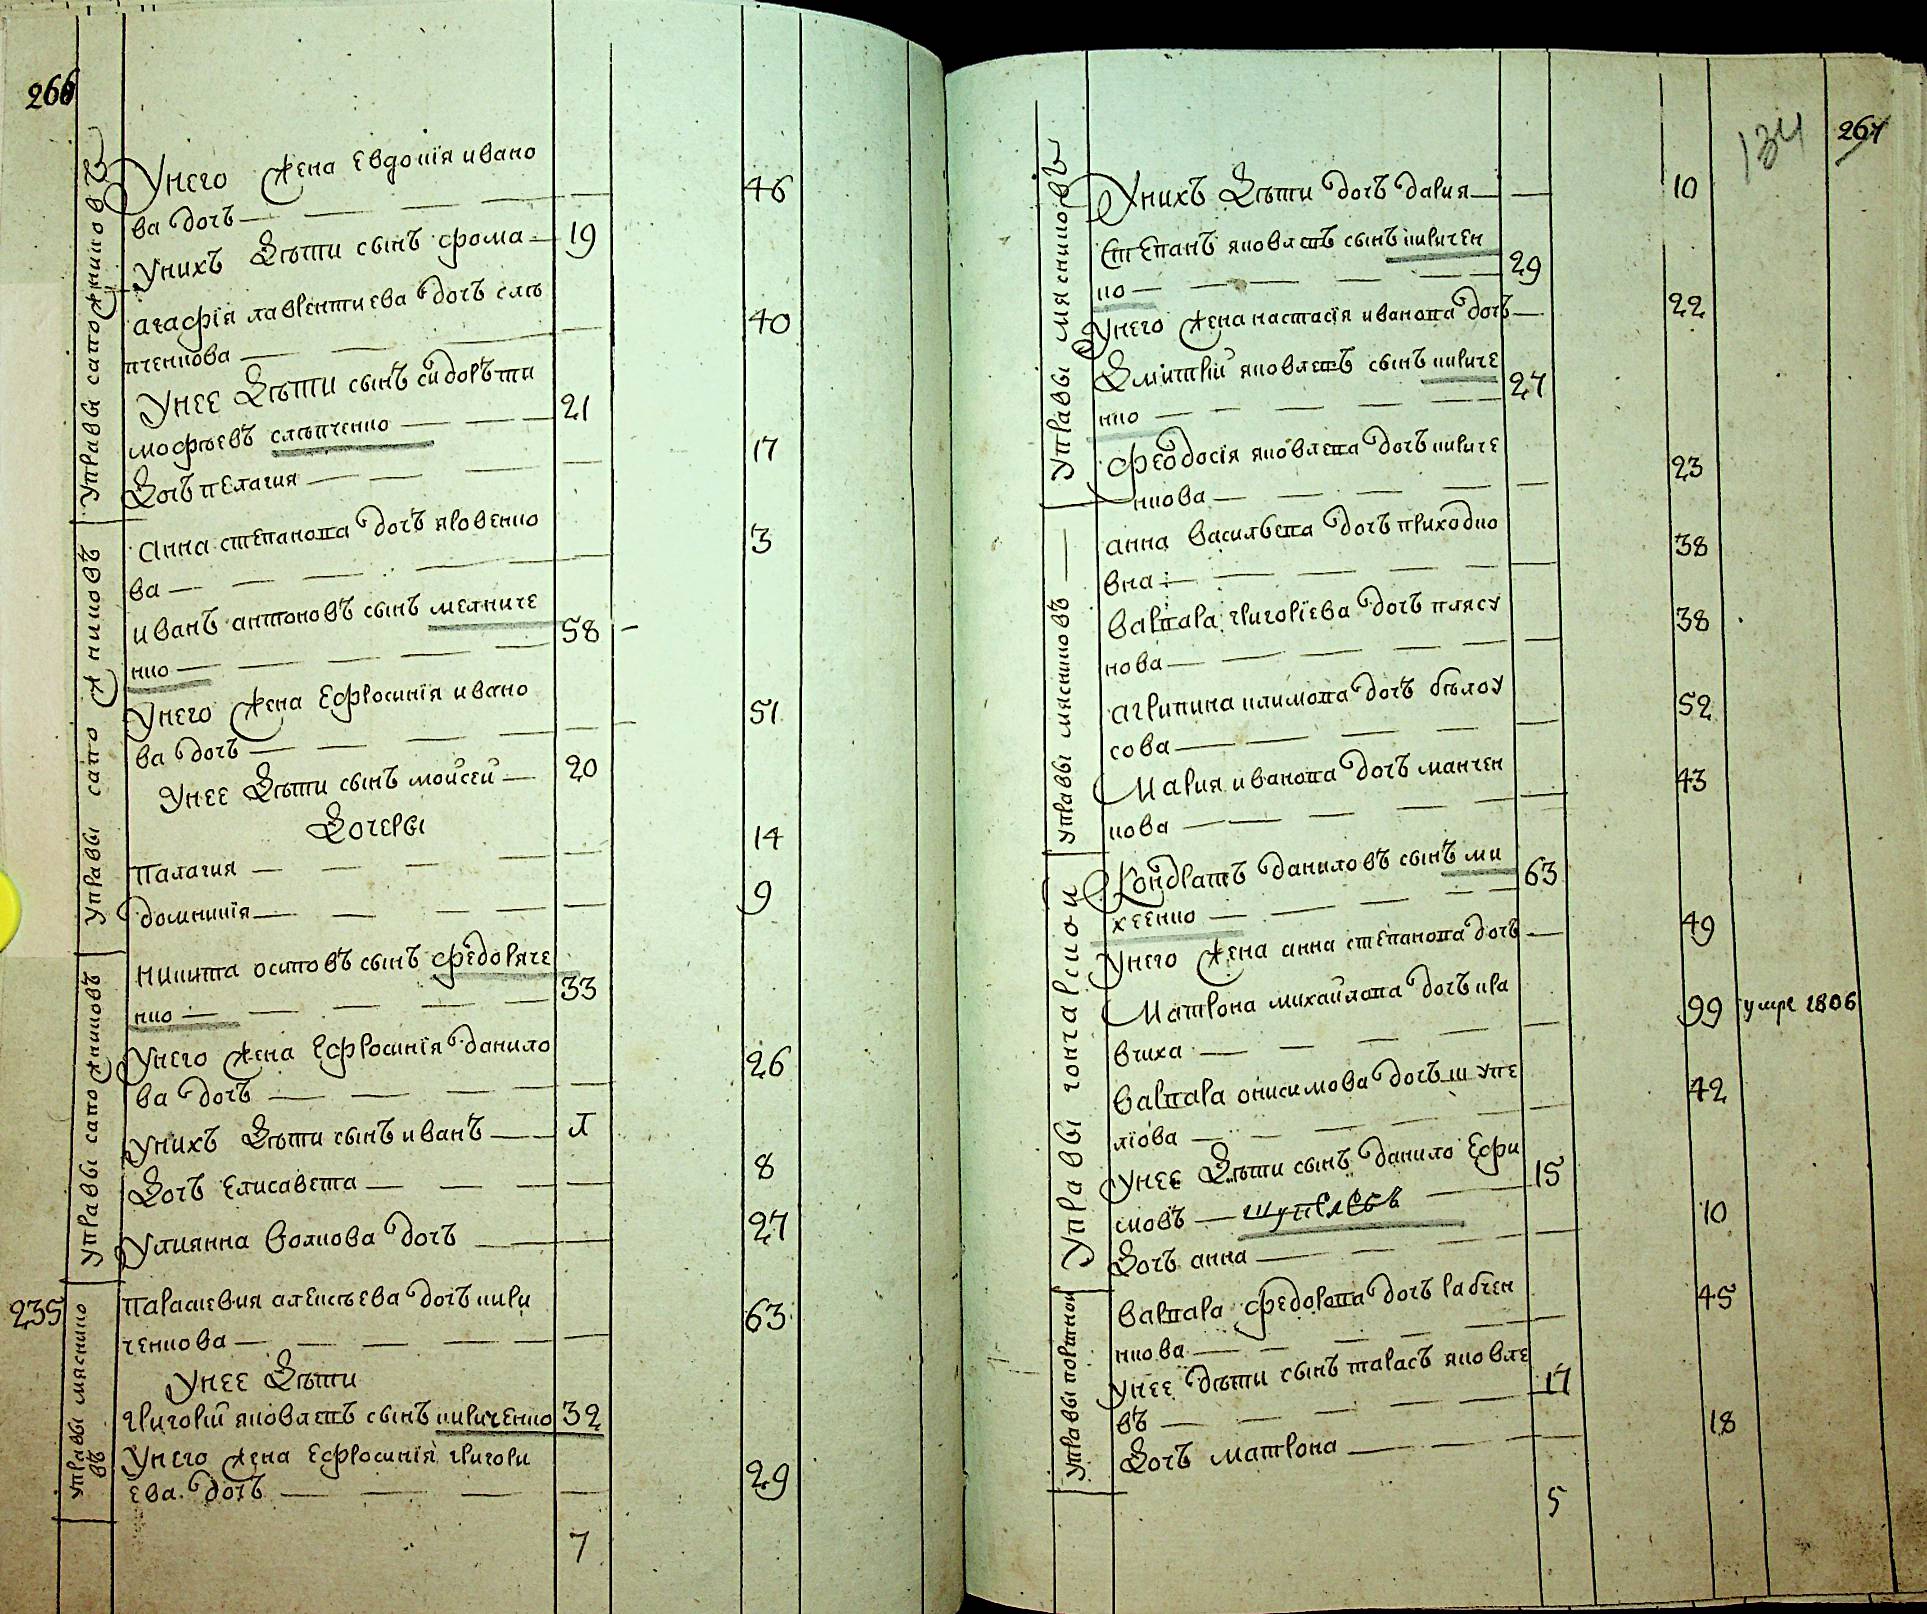 266
Управы сапожниковъ
Унего жена Евдокія ивано
ва дочъ 46
Унихъ Дѣти сынъ фома 19
агафія лаврентиева дочъ слѣ
пченкова 40
Унее Дѣти сынъ сидоръ ти
мофѣевъ слѣпченко 21
Дочъ пелагия 17
Управы сапожниковъ
Анна степанова дочъ яровенко
ва 3
иванъ антоновъ сынъ мелниче
нко 58
Унего жена Ефросинія ивано
ва дочъ 51
Унее Дѣти сынъ мойсей 20
Дочеры
палагия 14
домникія 9
Управы сапожниковъ
никита осиповъ сынъ федоряче
нко 33
Унего жена Ефросинія данило
ва дочъ 26
Унихъ Дѣти сынъ иванъ л
Дочъ Елисавета 8
Улиянна волкова дочъ 27
235
Управы мяснико
въ
параскевия алексѣева дочъ кири
ченкова 63
Унее Дѣти
григорій яковлевъ сынъ кириченко 32
Унего жена Ефросинія григори
ева дочъ 29
7
134
267
Управы мясниковъ
Унихъ Дѣти дочъ дария 10
Степанъ яковлевъ сынъ киричен
ко 29
Унего жена настасія иванова дочъ 22
Дмитрій яковлевъ сынъ кириче
нко 27
феодосія яковлева дочъ кириче
нкова 23
Управы мясниковъ
анна васильева дочъ приходко
вна 38
варвара григоріева дочъ плясу
нова 38
агрипина климова дочъ бѣлоу
сова 52
Мария иванова дочъ манчен
кова 43
Управы гончарской
Кондратъ даниловъ сынъ ми
хеенко 63
Унего жена анна степанова дочъ 49
Матрона михайлова дочъ кра
вчиха 99 умре 1806
варвара онисимова дочъ шупе
лѣова 42
Унее Дѣти сынъ данило Ефи
мовъ шупелевъ 15
Дочъ анна 10
Управы портной
варвара федорова дочъ рабчен
кова 45
Унее дѣти сынъ тарасъ яковле
въ 17
Дочъ матрона 18
5